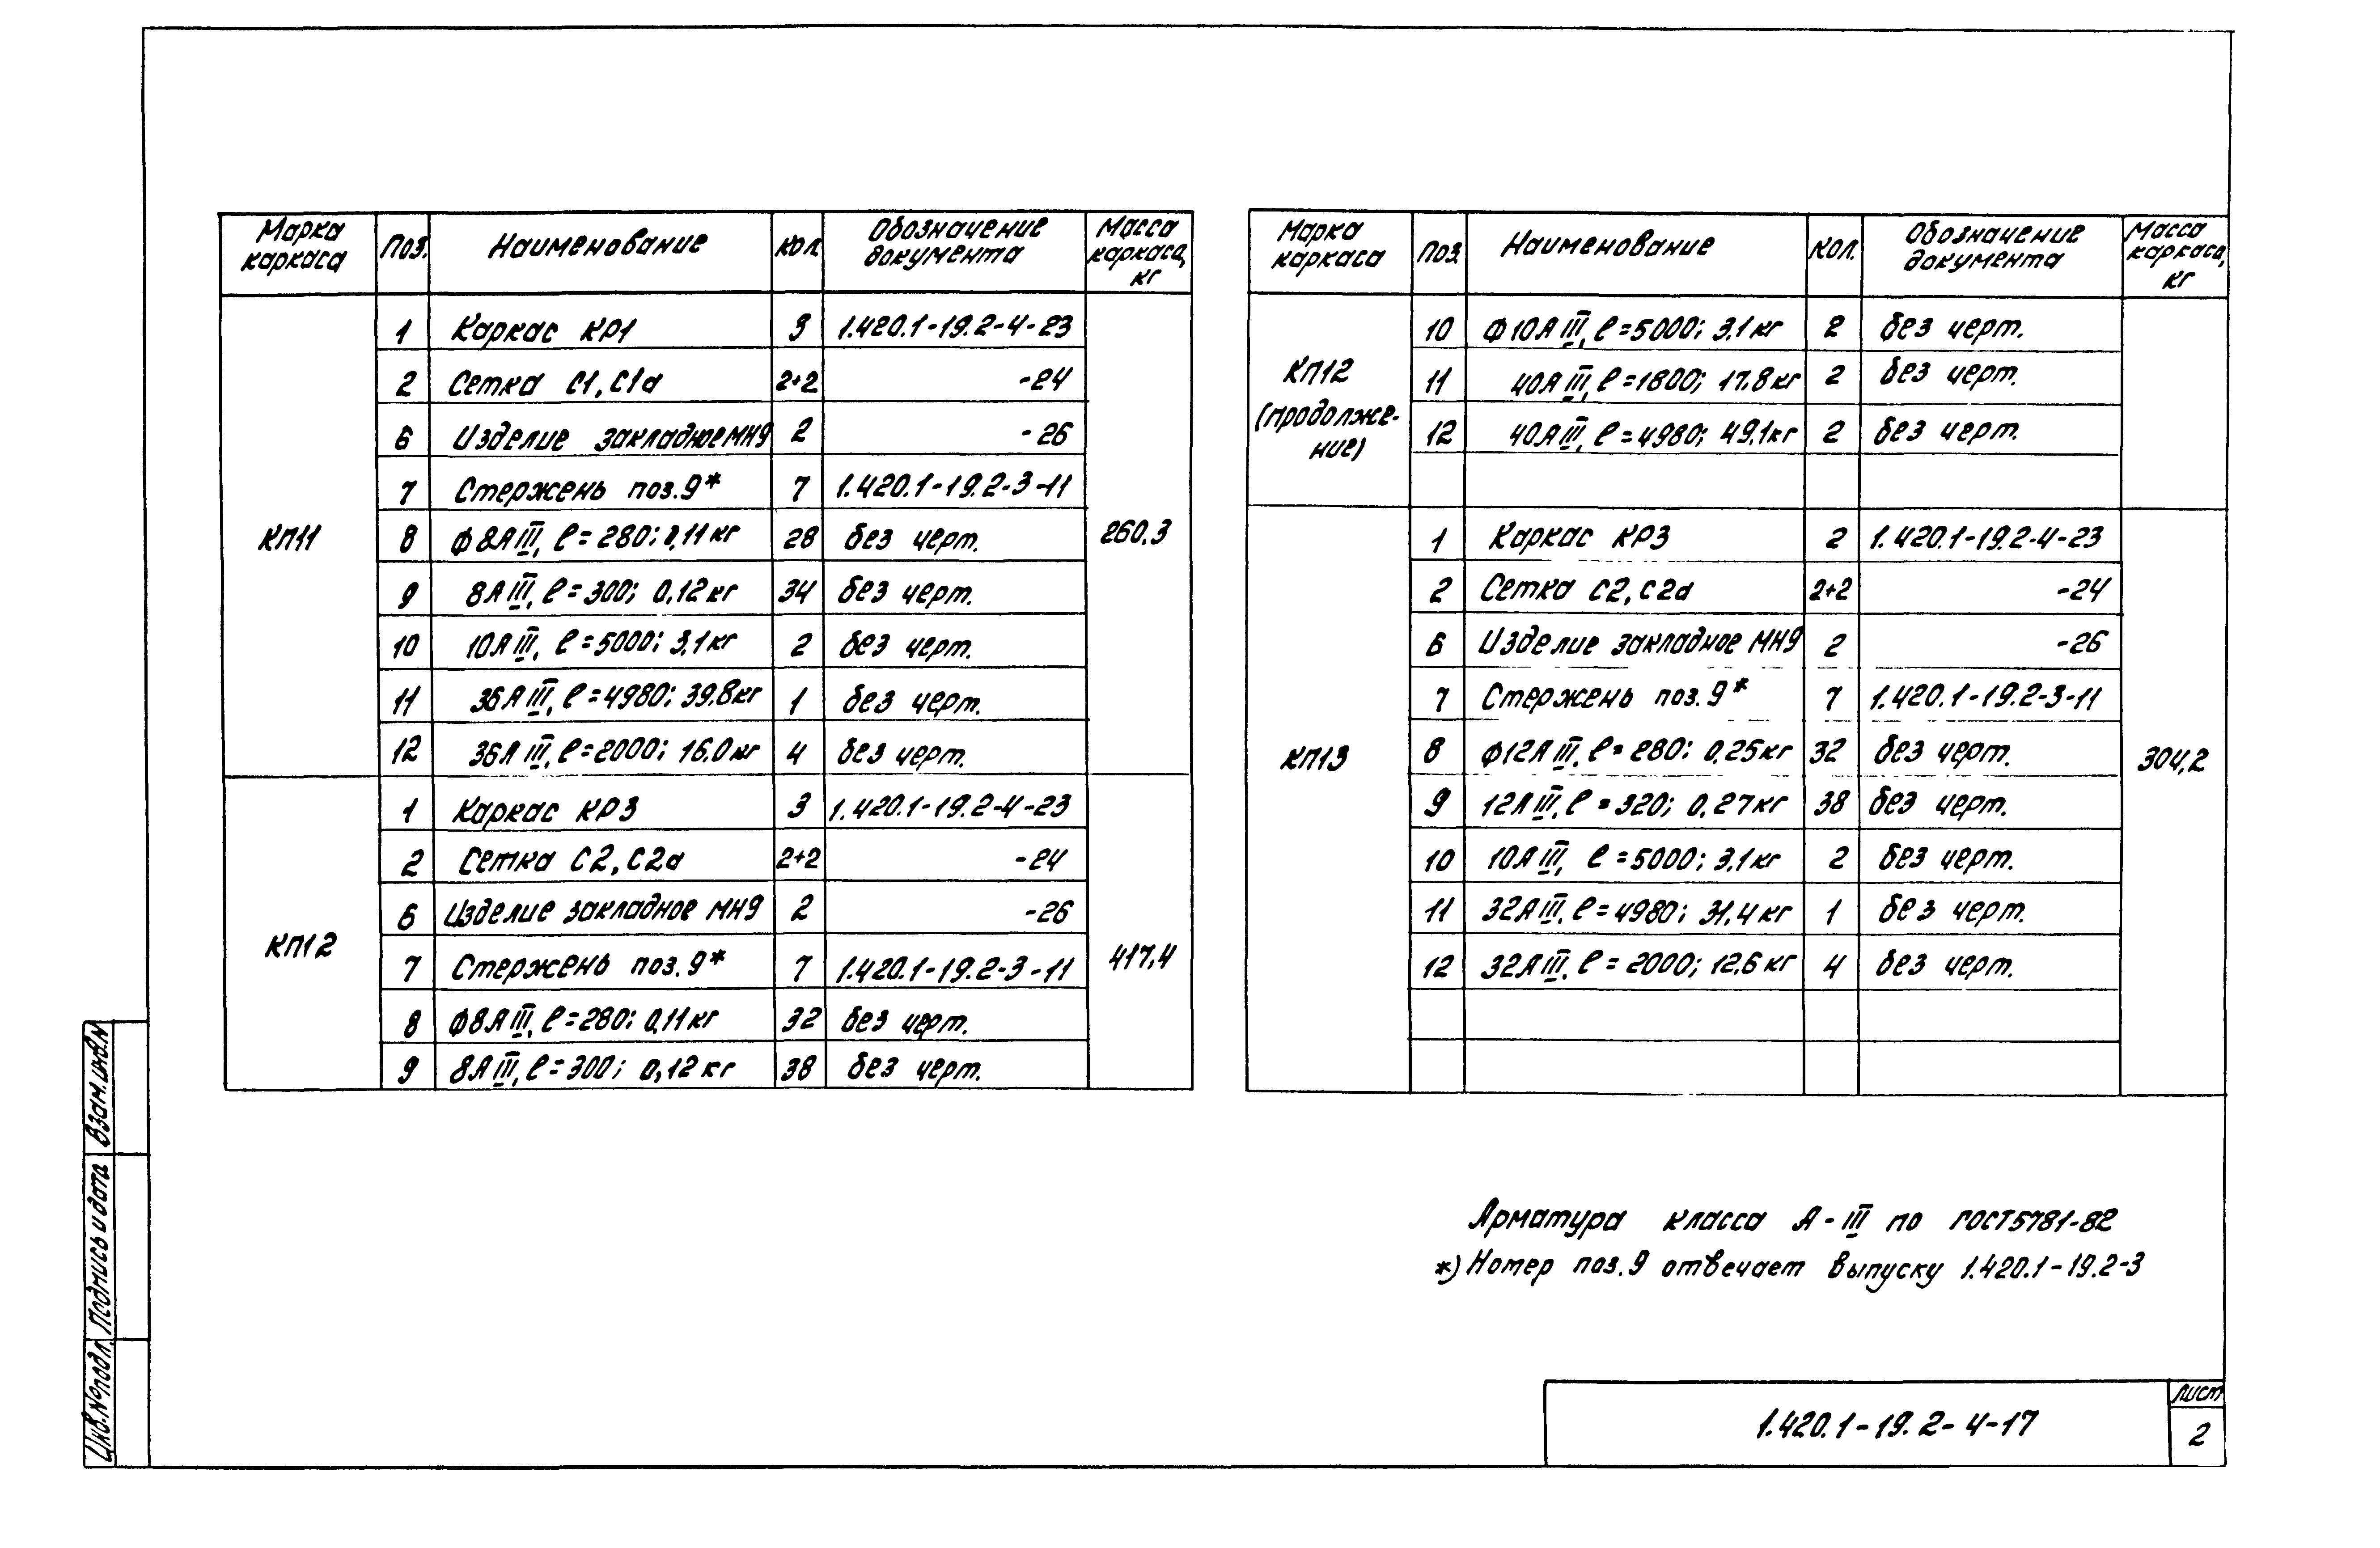 Марка каркаса | Поз. | Наименование | Кол. | Обозначение документа | Масса каркаса, кг
КП11 | 1 | Каркас КР1 | 3 | 1.420.1-19.2-4-23 | 260,3
2 | Сетка С1, С1а | 2+2 | -24
6 | Изделие закладное МН9 | 2 | -26
7 | Стержень поз. 9* | 7 | 1.420.1-19.2-3-11
8 | Ф8АIII, ℓ=280; 0,11кг | 28 | без черт.
9 | 8АIII, ℓ=300; 0,12кг | 34 | без черт.
10 | 10АIII, ℓ=5000; 3,1кг | 2 | без черт.
11 | 36АIII, ℓ=4980; 39.8кг | 1 | без черт.
12 | 36АIII, ℓ=2000; 16.0кг | 4 | без черт.
КП12 | 1 | Каркас КР3 | 3 | 1.420.1-19.2-4-23 | 417,4
2 | Сетка С2, С2а | 2+2 | -24
6 | Изделие закладное МН9 | 2 | -26
7 | Стержень поз. 9* | 7 | 1.420.1-19.2-3-11
8 | Ф8АIII, ℓ=280; 0,11кг | 32 | без черт.
9 | 8АIII, ℓ=300; 0,12кг | 38 | без черт.
Марка каркаса | Поз. | Наименование | Кол. | Обозначение документа | Масса каркаса, кг
КП12 (продолже-ние) | 10 | Ф10АIII, ℓ=5000; 3,1кг | 2 | без черт.
11 | 40АIII, ℓ=1800; 17.8кг | 2 | без черт.
12 | 40АIII, ℓ=4980; 49,1кг | 2 | без черт.
КП13 | 1 | Каркас КР3 | 2 | 1.420.1-19.2-4-23 | 304,2
2 | Сетка С2, С2а | 2+2 | -24
6 | Изделие закладное МН9 | 2 | -26
7 | Стержень поз. 9* | 7 | 1.420.1-19.2-3-11
8 | Ф12АIII, ℓ=280; 0,25кг | 32 | без черт.
9 | 12АIII, ℓ=320; 0,27кг | 38 | без черт.
10 | 10АIII, ℓ=5000; 3,1кг | 2 | без черт.
11 | 32АIII, ℓ=4980; 31,4кг | 1 | без черт.
12 | 32АIII, ℓ=2000; 12.6кг | 4 | без черт.
Арматура класса А-III по ГОСТ5781-82
*) Номер поз. 9 отвечает выпуску 1.420.1-19.2-3
1.420.1-19.2-4-17
Лист
2
Взам.инв.N
Подпись и дата
Инв.№подл.